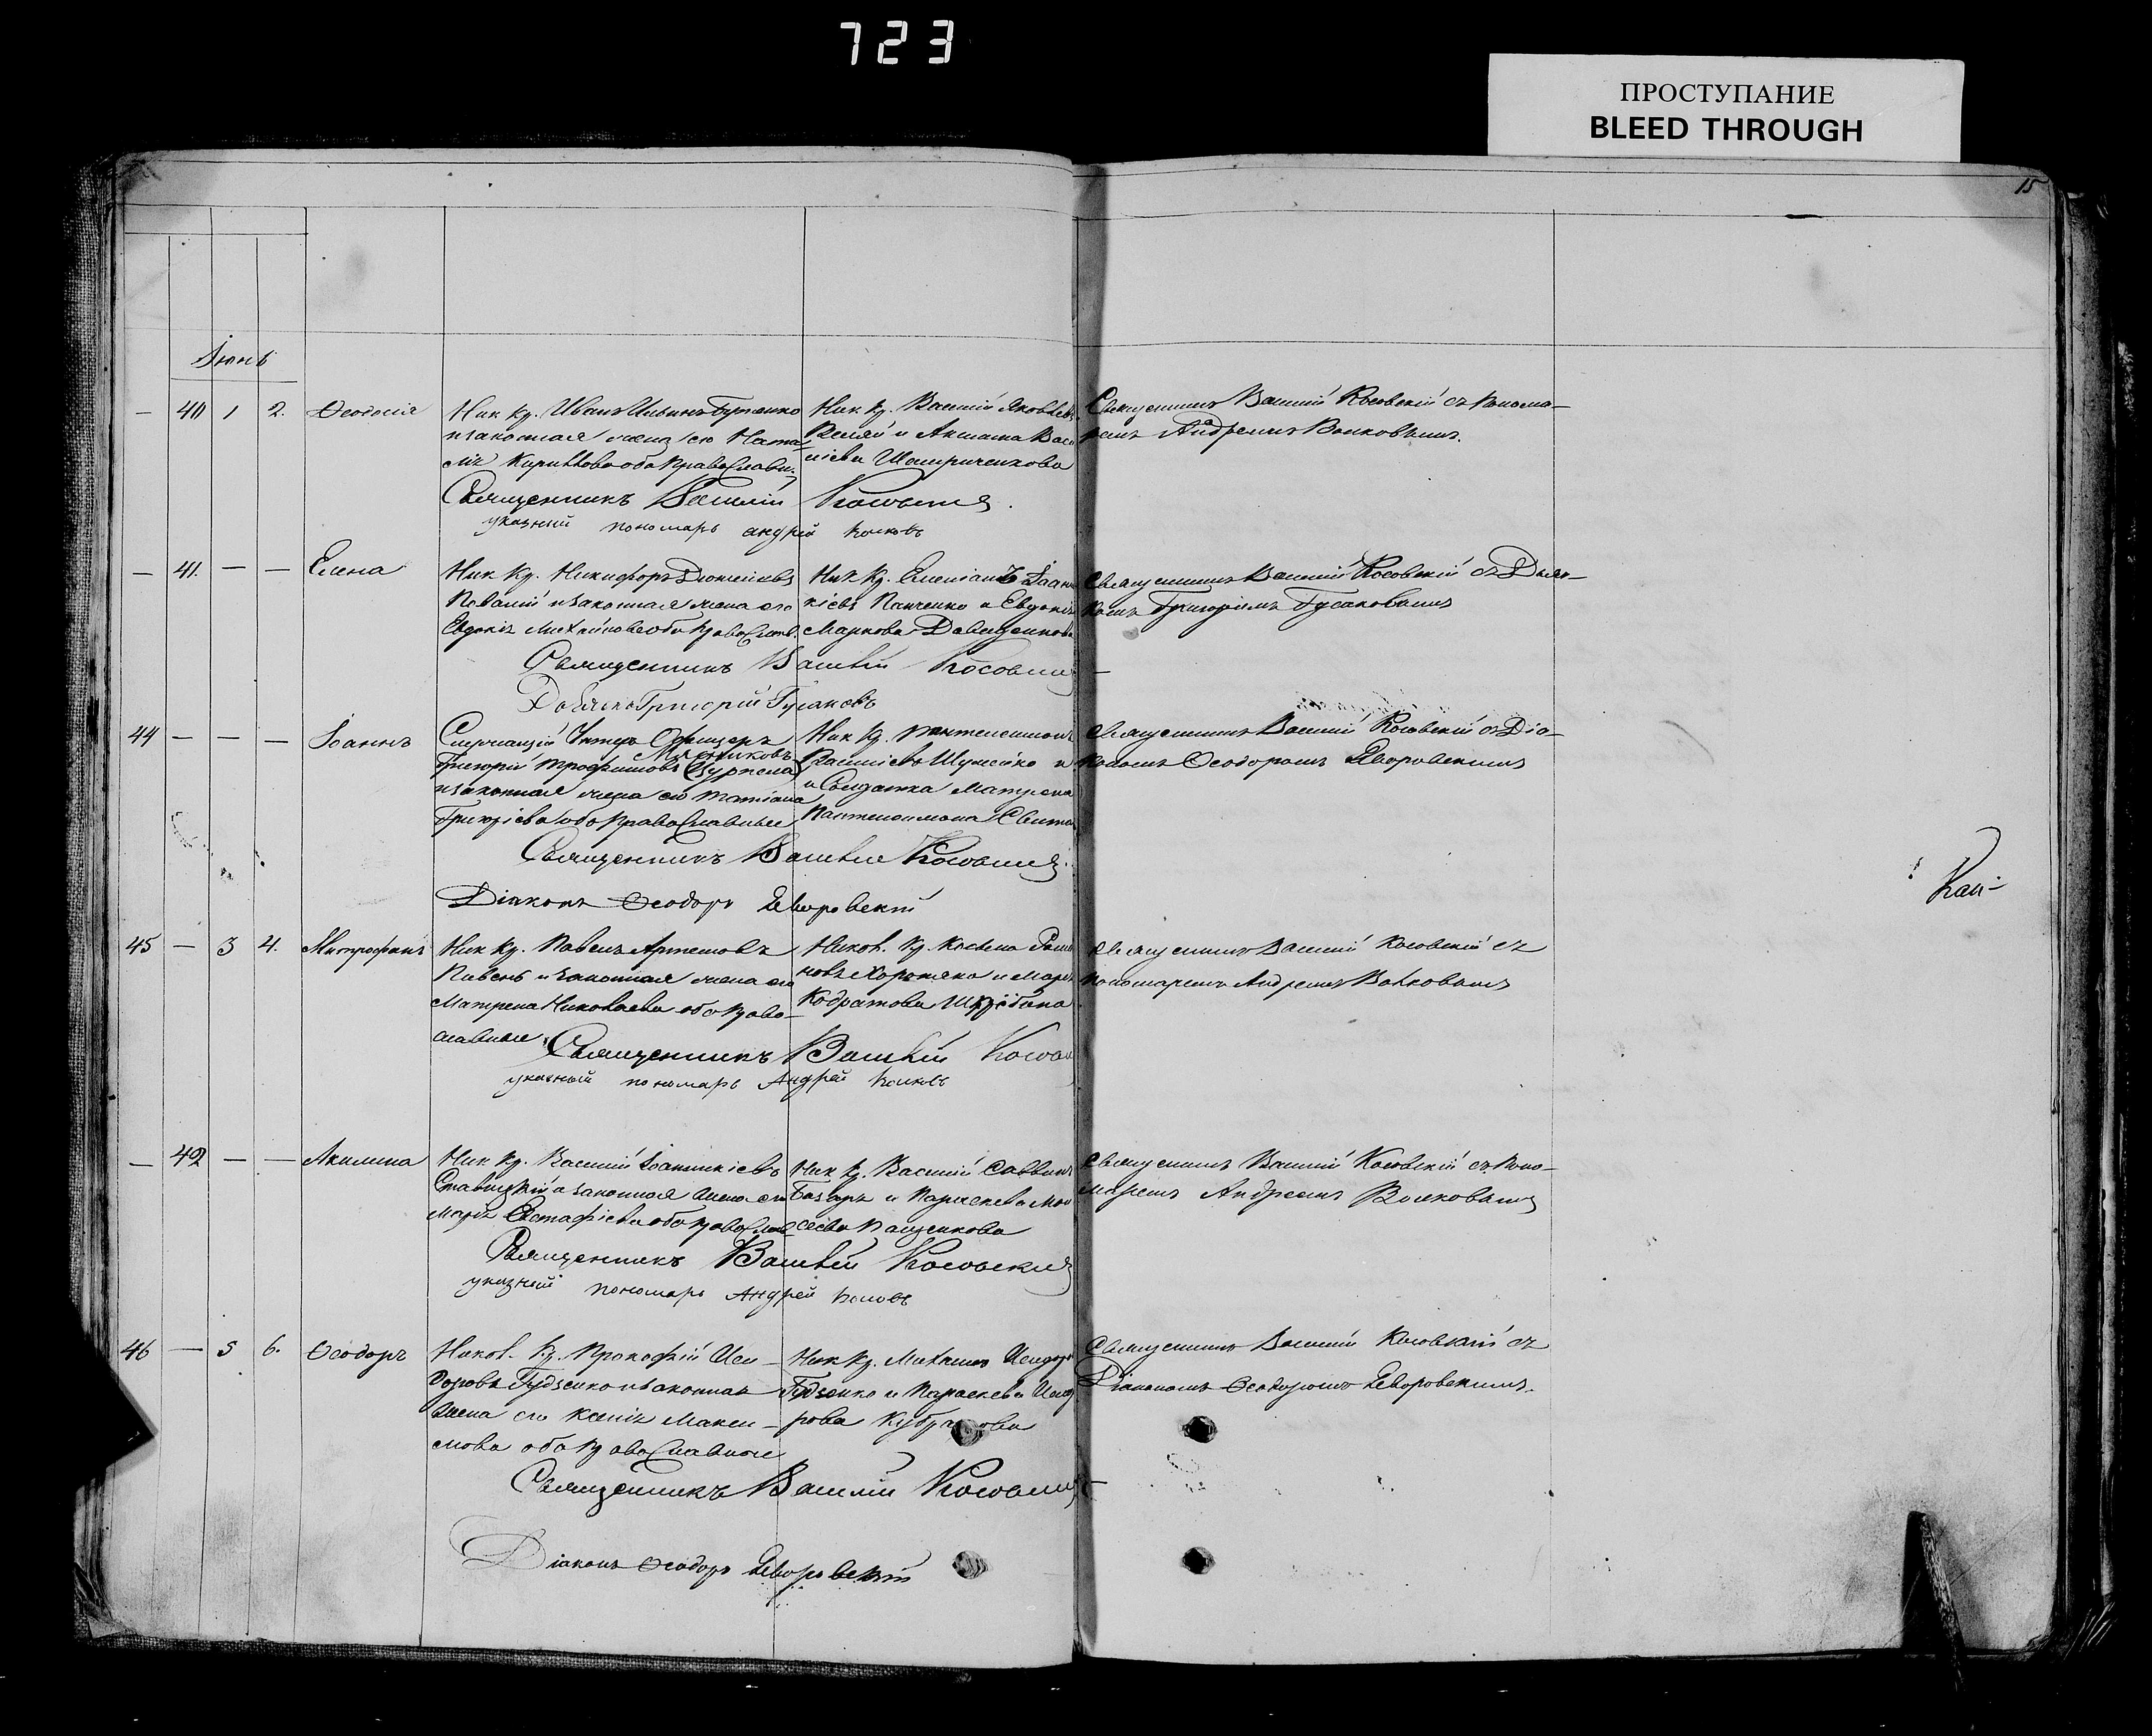 723
ПРОСТУПАНИЕ
BLEED THROUGH
15
Іюнь
— 40 1 2. Ѳеодосія
Ник Кр. Иванъ Ильинъ
и законная жена его Ната
лія Кириллова оба Православн.
Ник Кр. Василій Яковлевъ
и Васи
ліева
Священникъ Василій Косовскій съ Понома-
ремъ Андреемъ Волковымъ.
Священникъ Василій Косовскій
указный пономарь андрей Волковъ
— 41. — — Елена
Ник Кр. Никифоръ
и законная жена его
Евдокія оба Православ.
Ник Кр. Іоанн
кіевъ Панченко и Евдокія
Маркова
Священникъ Василій Косовскій съ Дья-
комъ Григоріемъ Гусаковымъ
Священникъ Василій Косовскій
Григорій Гусаковъ
44 — — — Іоаннъ
Служащій Унтеръ Офицеръ
Григорій Трофимовъ
и законная жена его Татіана
Григоріева оба Православные
Ник Кр. Пантелеимонъ
и
и Солдатка Матрена
Пантелеимона
Священникъ Василій Косовскій съ Діа-
кономъ Ѳеодоромъ Яворовскимъ
Священникъ Василій Косовскій
Діаконъ Ѳеодоръ Яворовскій
Кай-
45 — 3 4. Митрофанъ
Ник Кр. Павелъ Артемовъ
Пивень и законная жена его
Матрена Николаева оба Право-
славные
Никол. Кр. Косьма
новъ и Марѳа
Кодратова
Священникъ Василій Косовскій съ
пономаремъ Андреемъ Волковымъ
Священникъ Василій Косовскій
указный пономарь Андрей Волковъ
— 42 — — Акилина
Ник Кр. Василій Іоанникіевъ
Ставицкій и законная жена его
Марія Евстафіева оба Православ
Ник Кр. Василій Саввинъ
и Параскева Мои
сеева
Священникъ Василій Косовскій съ Поно-
маремъ Андреемъ Волковымъ
Священникъ Василій Косовскій
указный пономарь Андрей Волковъ
46 — 5 6. Ѳеодоръ
Никол. Кр. Прокофій Иси-
доровъ Гудзенко и законная
жена его Ксенія Макси-
мова оба Православные
Ник Кр. Михаилъ Исидоро
Гудзенко и Параскева Исидо
рова
Священникъ Василій Косовскій съ
Діакономъ Ѳеодоромъ Яворовскимъ.
Священникъ Василій Косовскій
Діаконъ Ѳеодоръ Яворовскій